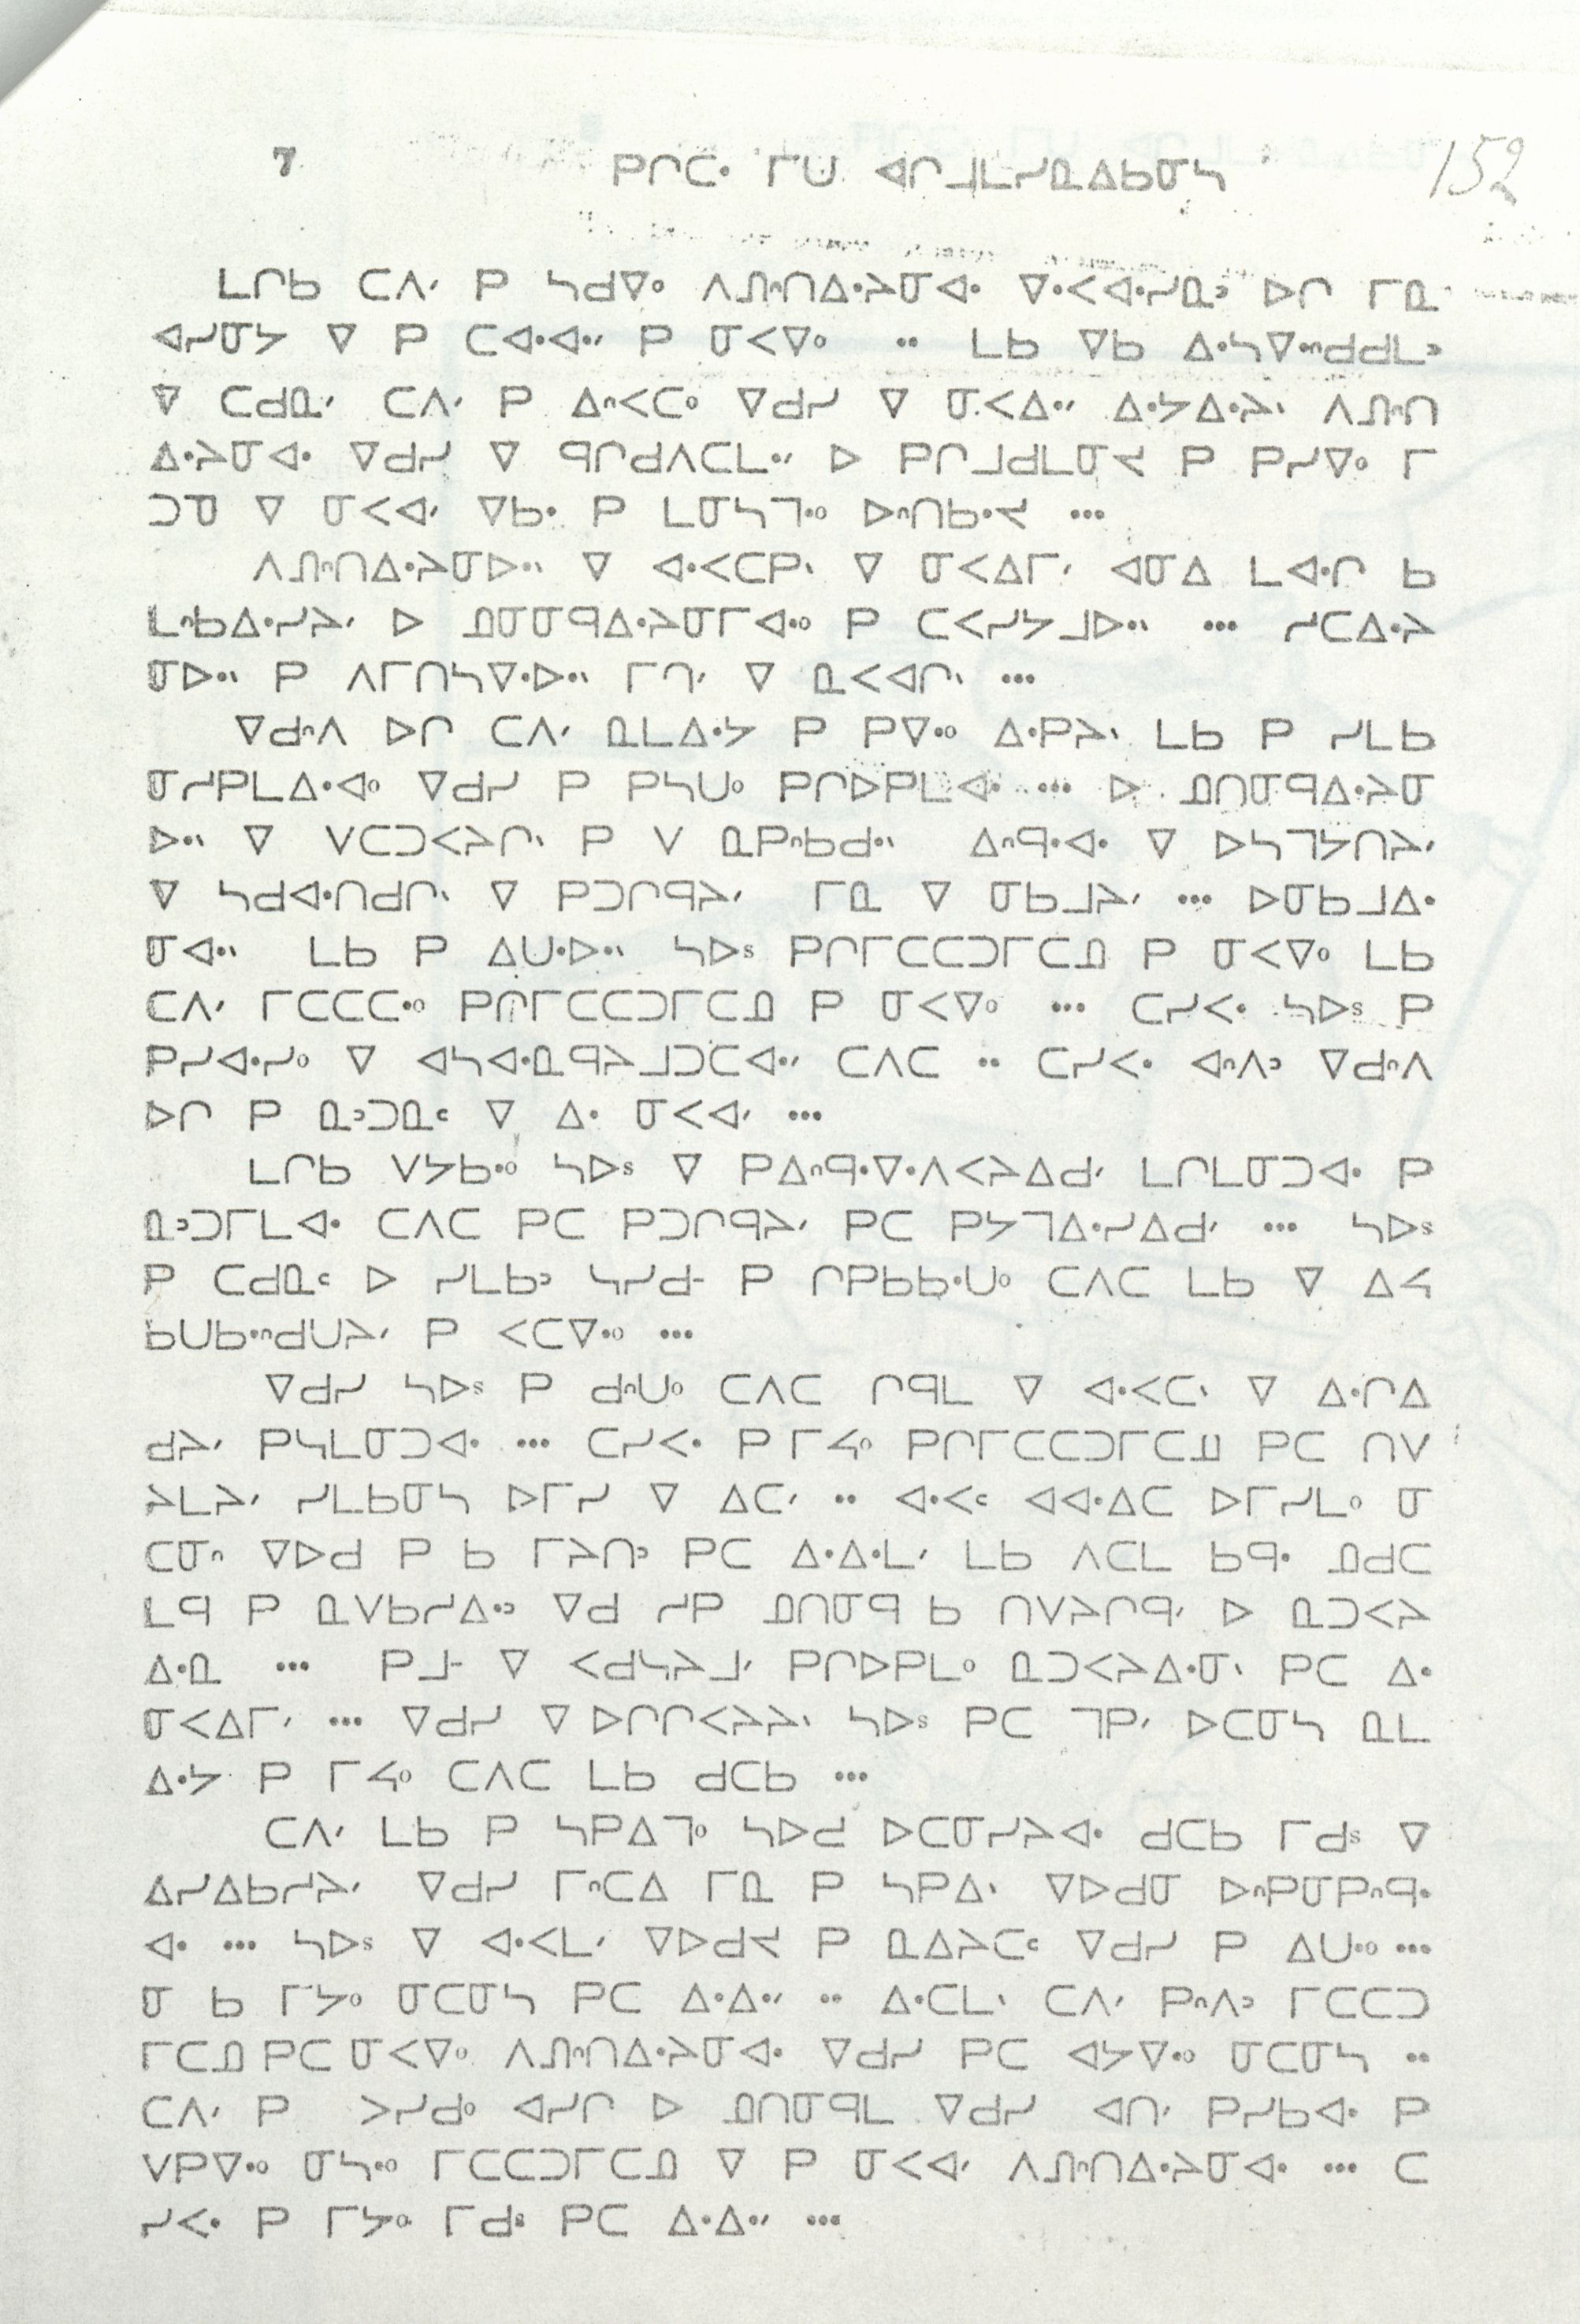 7 ᑭᒋᑕᐧ ᒥᑌ ᐊᒋᒧᒪᓯᓇᐃᑲᓂᓴ 152
ᒪᒋᑲ ᑕᐱᐟ ᑭ ᓴᑯᐁᐤ ᐱᔑᐢᑎᐃᐧᔨᓂᐊᐧ ᐁᐧᐸᐊᐧᓯᓇᐣ ᐅᒋ ᒥᓇ
ᐊᓯᓂᔭ ᐁ ᑭ ᑕᐊᐧᐊᐧᐟ ᑭ ᓂᐸᐁᐤ .. ᒪᑲ ᐁᑲ ᐃᐧᓴᐁᐧᐢᑯᑯᒪᐣ
ᐁ ᑕᑯᓇᐠ ᑕᐱᐟ ᑭ ᐃᐢᐸᑕᐤ ᐁᑯᓯ ᐁ ᓂᐸᐃᐟ ᐃᐧᔭᐃᐧᔨᐠ ᐱᔑᐢᑎ
ᐃᐧᔨᓂᐊᐧ ᐁᑯᓯ ᐁ ᑫᒋᑯᐱᑕᒪᐧᐟ ᐅ ᑭᒋᒧᑯᒪᓂᔪ ᑭ ᑭᓯᐁᐤ ᒥ
ᑐᓀ ᐁ ᓂᐸᐊᐟ ᐁᑲᐧ ᑭ ᒪᓂᓴᒣᐧᐤ ᐅᐢᑎᑲᐧᔪ ...
ᐱᔑᐢᑎᐃᐧᔨᓂᐅᐧᐠ ᐁ ᐊᐧᐸᑕᑭᐠ ᐁ ᓂᐸᐃᒥᐟ ᐊᓂᐃ ᒪᐊᐧᒋ ᑲ
ᒪᐢᑲᐃᐧᓯᔨᐟ ᐅ ᓅᓂᓂᑫᐃᐧᔨᓂᒥᐊᐧᐤ ᑭ ᑕᐸᓯᔭᒧᐅᐧᐠ ... ᓯᑕᐃᐧᔨ
ᓂᐅᐧᐠ ᑭ ᐱᒥᑎᓴᐁᐧᐅᐧᐠ ᒥᑎᐟ ᐁ ᓇᐸᐊᒋᐠ ...
ᐁᑯᐢᐱ ᐅᒋ ᑕᐱᐟ ᓇᒪᐃᐧᔭ ᑭ ᑭᐁᐧᐤ ᐃᐧᑭᔨᐠ ᒪᑲ ᑭ ᓯᒪᑲ
ᓂᓯᑭᒪᐃᐧᐊᐤ ᐁᑯᓯ ᑭ ᑭᓴᑌᐤ ᑭᒋᐅᑭᒪᐊᐧ ... ᐅ ᓅᑎᓂᑫᐃᐧᔨᓂ
ᐅᐧᐠ ᐁ ᐯᑕᑐᐸᔨᒋᐠ ᑭ ᐯ ᓇᑭᐢᑲᑯᐧᐠ ᐃᐢᑫᐧᐊᐧ ᐁ ᐅᓴᒣᔭᑎᔨᐟ
ᐁ ᓴᑯᐊᐧᑎᑯᒋᐠ ᐁ ᑭᑐᒋᑫᔨᐟ ᒥᓇ ᐁ ᓂᑲᒧᔨᐟ ... ᐅᓂᑲᒧᐃᐧ
ᓂᐊᐧᐠ ᒪᑲ ᑭ ᐃᑌᐧᐅᐧᐠ ᓴᐅs ᑭᒋᒥᑕᑕᑐᒥᑕᓄ ᑭ ᓂᐸᐁᐤ ᒪᑲ
ᑕᐱᐟ ᒥᑕᑕᑕᐧᐤ ᑭᒋᒥᑕᑕᑐᒥᑕᓄ ᑭ ᓂᐸᐁᐤ ... ᑕᓯᐸᐧ ᓴᐅs ᑭ
ᑭᓯᐊᐧᓯᐤ ᐁ ᐊᓴᐊᐧᓇᑫᔨᒧᑐᑕᐊᐧᐟ ᑕᐱᑕ .. ᑕᓯᐸᐧ ᐊᐢᐱᐣ ᐁᑯᐢᐱ
ᐅᒋ ᑭ ᓇᐣᑐᓇᑦ ᐁ ᐃᐧ ᓂᐸᐊᐟ ...
ᒪᒋᑲ ᐯᔭᑲᐧᐤ ᓴᐅs ᐁ ᑭᐃᐢᑫᐧᐁᐧᐱᐸᔨᐃᑯᐟ ᒪᒋᒪᓂᑐᐊᐧ ᑭ
ᓇᐣᑐᒥᒪᐊᐧ ᑕᐱᑕ ᑭᑕ ᑭᑐᒋᑫᔨᐟ ᑭᑕ ᑭᔭᒣᐃᐧᓯᐃᑯᐟ ... ᓴᐅs
ᑭ ᑕᑯᓇᑦ ᐅ ᓯᒪᑲᐣ ᓴᓯᑯ- ᑭ ᒋᑭᑲᑲᐧᑌᐤ ᑕᐱᑕ ᒪᑲ ᐁ ᐃᔦ
ᑲᑌᑲᐧᐢᑯᑌᔨᐟ ᑭ ᐸᑕᐁᐧᐤ ...
ᐁᑯᓯ ᓴᐅs ᑭ ᑯᐢᑌᐤ ᑕᐱᑕ ᒋᑫᒪ ᐁ ᐊᐧᐸᑕᐠ ᐁ ᐃᐧᒋᐃ
ᑯᔨᐟ ᑭᓴᒪᓂᑐᐊᐧ ... ᑕᓯᐸᐧ ᑭ ᒥᔦᐤ ᑭᒋᒥᑕᑕᑐᒥᑕᓄ ᑭᑕ ᑎᐯ
ᔨᒪᔨᐟ ᓯᒪᑲᓂᓴ ᐅᒥᓯ ᐁ ᐃᑕᐟ .. ᐊᐧᐸᑦ ᐊᐊᐧᐃᑕ ᐅᒥᓯᒪᐤ ᓂ
ᑕᓂᐢ ᐁᐅᑯ ᑭ ᑲ ᒥᔨᑎᐣ ᑭᑕ ᐃᐧᐃᐧᒪᐟ ᒪᑲ ᐱᑕᒪ ᑲᑫᐧ ᓅᑯᑕ
ᒪᑫ ᑭ ᓇᐯᑲᓯᐃᐧᐣ ᐁᑯ ᓯᑭ ᓅᑎᓂᑫ ᑲ ᑎᐯᔨᒋᑫᐟ ᐅ ᓇᑐᐸᔨ
ᐃᐧᓇ ... ᑭᒧ- ᐁ ᐸᑯᓴᔨᒧᐟ ᑭᒋᐅᑭᒪᐤ ᓇᑐᐸᔨᐃᐧᓂᐠ ᑭᑕ ᐃᐧ
ᓂᐸᐃᒥᐟ ... ᐁᑯᓯ ᐁ ᐅᒋᒋᐸᔨᔨᐠ ᓴᐅs ᑭᑕ ᒣᑭᐟ ᐅᑕᓂᓴ ᓇᒪ
ᐃᐧᔭ ᑭ ᒥᔦᐤ ᑕᐱᑕ ᒪᑲ ᑯᑕᑲ ...
ᑕᐱᐟ ᒪᑲ ᑭ ᓴᑭᐃᒣᐤ ᓴᐅᓗ ᐅᑕᓂᓯᔨᐊᐧ ᑯᑕᑲ ᒥᑯs ᐁ
ᐃᓯᐃᑲᓯᔨᐟ ᐁᑯᓯ ᒥᐢᑕᐃ ᒥᓇ ᑭ ᓴᑭᐃᐠ ᐁᐅᑯᓂ ᐅᐢᑭᓂᑭᐢᑫᐧ
ᐊᐧ ... ᓴᐅs ᐁ ᐊᐧᐸᒪᐟ ᐁᐅᑯᔪ ᑭ ᓇᐃᔨᑕᑦ ᐁᑯᓯ ᑭ ᐃᑌᐧᐤ ...
ᓂ ᑲ ᒥᔭᐤ ᓂᑕᓂᓴ ᑭᑕ ᐃᐧᐃᐧᐟ .. ᐃᐧᑕᒪᐠ ᑕᐱᐟ ᑭᐢᐱᐣ ᒥᑕᑕᑐ
ᒥᑕᓄ ᑭᑕ ᓂᐸᐁᐤ ᐱᔑᐢᑎᐃᐧᔨᓂᐊᐧ ᐁᑯᓯ ᑭᑕ ᐊᔭᐁᐧᐤ ᓂᑕᓂᓴ ..
ᑕᐱᐟ ᑭ ᐳᓯᑯᐤ ᐊᓯᒋ ᐅ ᓅᑎᓂᑫᒪ ᐁᑯᓯ ᐊᑎᐟ ᑭᓯᑲᐊᐧ ᑭ
ᐯᑭᐁᐧᐤ ᓂᓴᐧᐤ ᒥᑕᑕᑐᒥᑕᓄ ᐁ ᑭ ᓂᐸᐊᐟ ᐱᔑᐢᑎᐃᐧᔨᓂᐊᐧ ... ᑕ
ᓯᐸᐧ ᑭ ᒥᔭᐤ ᒥᑯs ᑭᑕ ᐃᐧᐃᐧᐟ ...